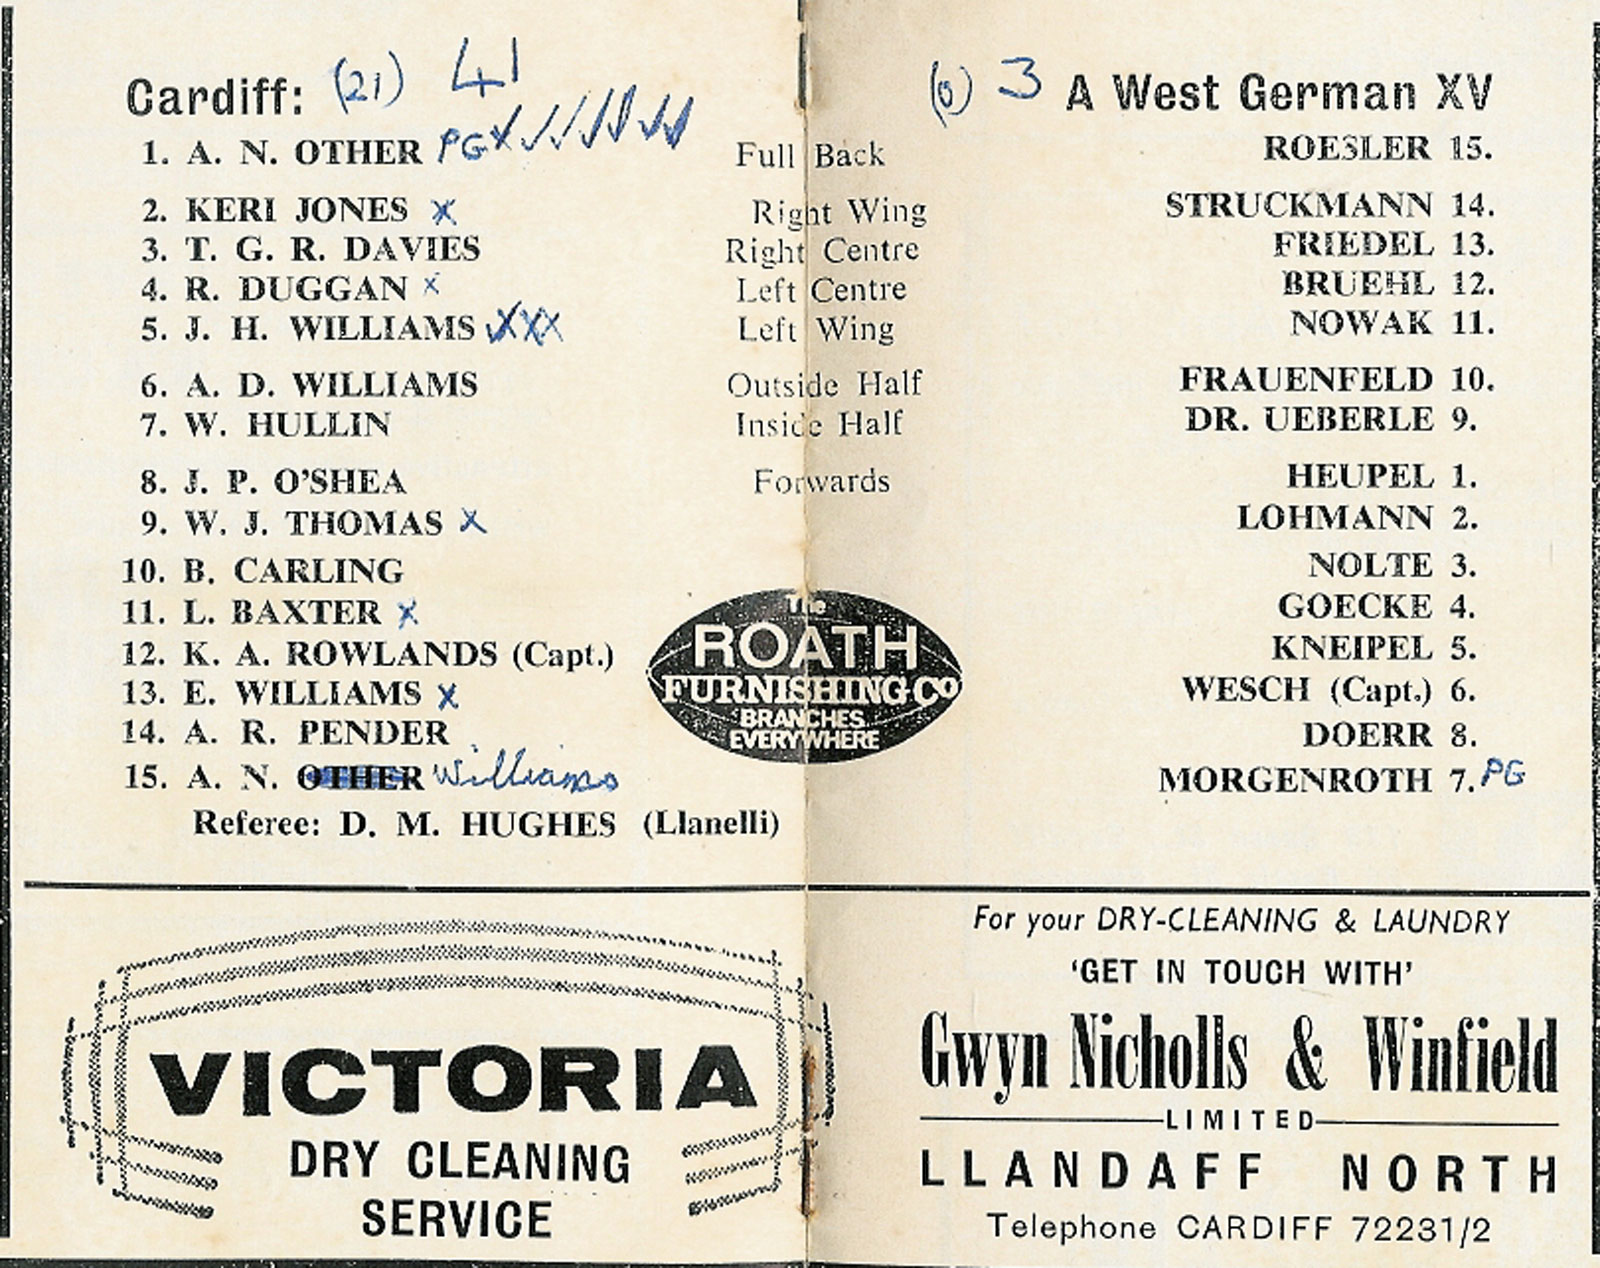 Cardiff: (21) 41
(0) 3 A West German XV
1. A. N. OTHER PG
Full Back
ROESLER 15.
2. KERI JONES x
Right Wing
STRUCKMANN 14.
3. T. G. R. DAVIES
Right Centre
FRIEDEL 13.
4. R. DUGGAN x
Left Centre
BRUEHL 12.
5. J. H. WILLIAMS xxx
Left Wing
NOWAK 11.
6. A. D. WILLIAMS
Outside Half
FRAUENFELD 10.
7. W. HULLIN
Inside Half
DR. UEBERLE 9.
8. J. P. O'SHEA
Forwards
HEUPEL 1.
9. W. J. THOMAS x
LOHMANN 2.
10. B. CARLING
NOLTE 3.
11. L. BAXTER x
GOECKE 4.
12. K. A. ROWLANDS (Capt.)
KNEIPEL 5.
13. E. WILLIAMS x
WESCH (Capt.) 6.
14. A. R. PENDER
DOERR 8.
15. A. N. OTHER Williams
MORGENROTH 7. PG
Referee: D. M. HUGHES (Llanelli)
The
ROATH
FURNISHING CO
BRANCHES
EVERYWHERE
VICTORIA
DRY CLEANING
SERVICE
For your DRY-CLEANING & LAUNDRY
'GET IN TOUCH WITH'
Gwyn Nicholls & Winfield
LIMITED
LLANDAFF NORTH
Telephone CARDIFF 72231/2